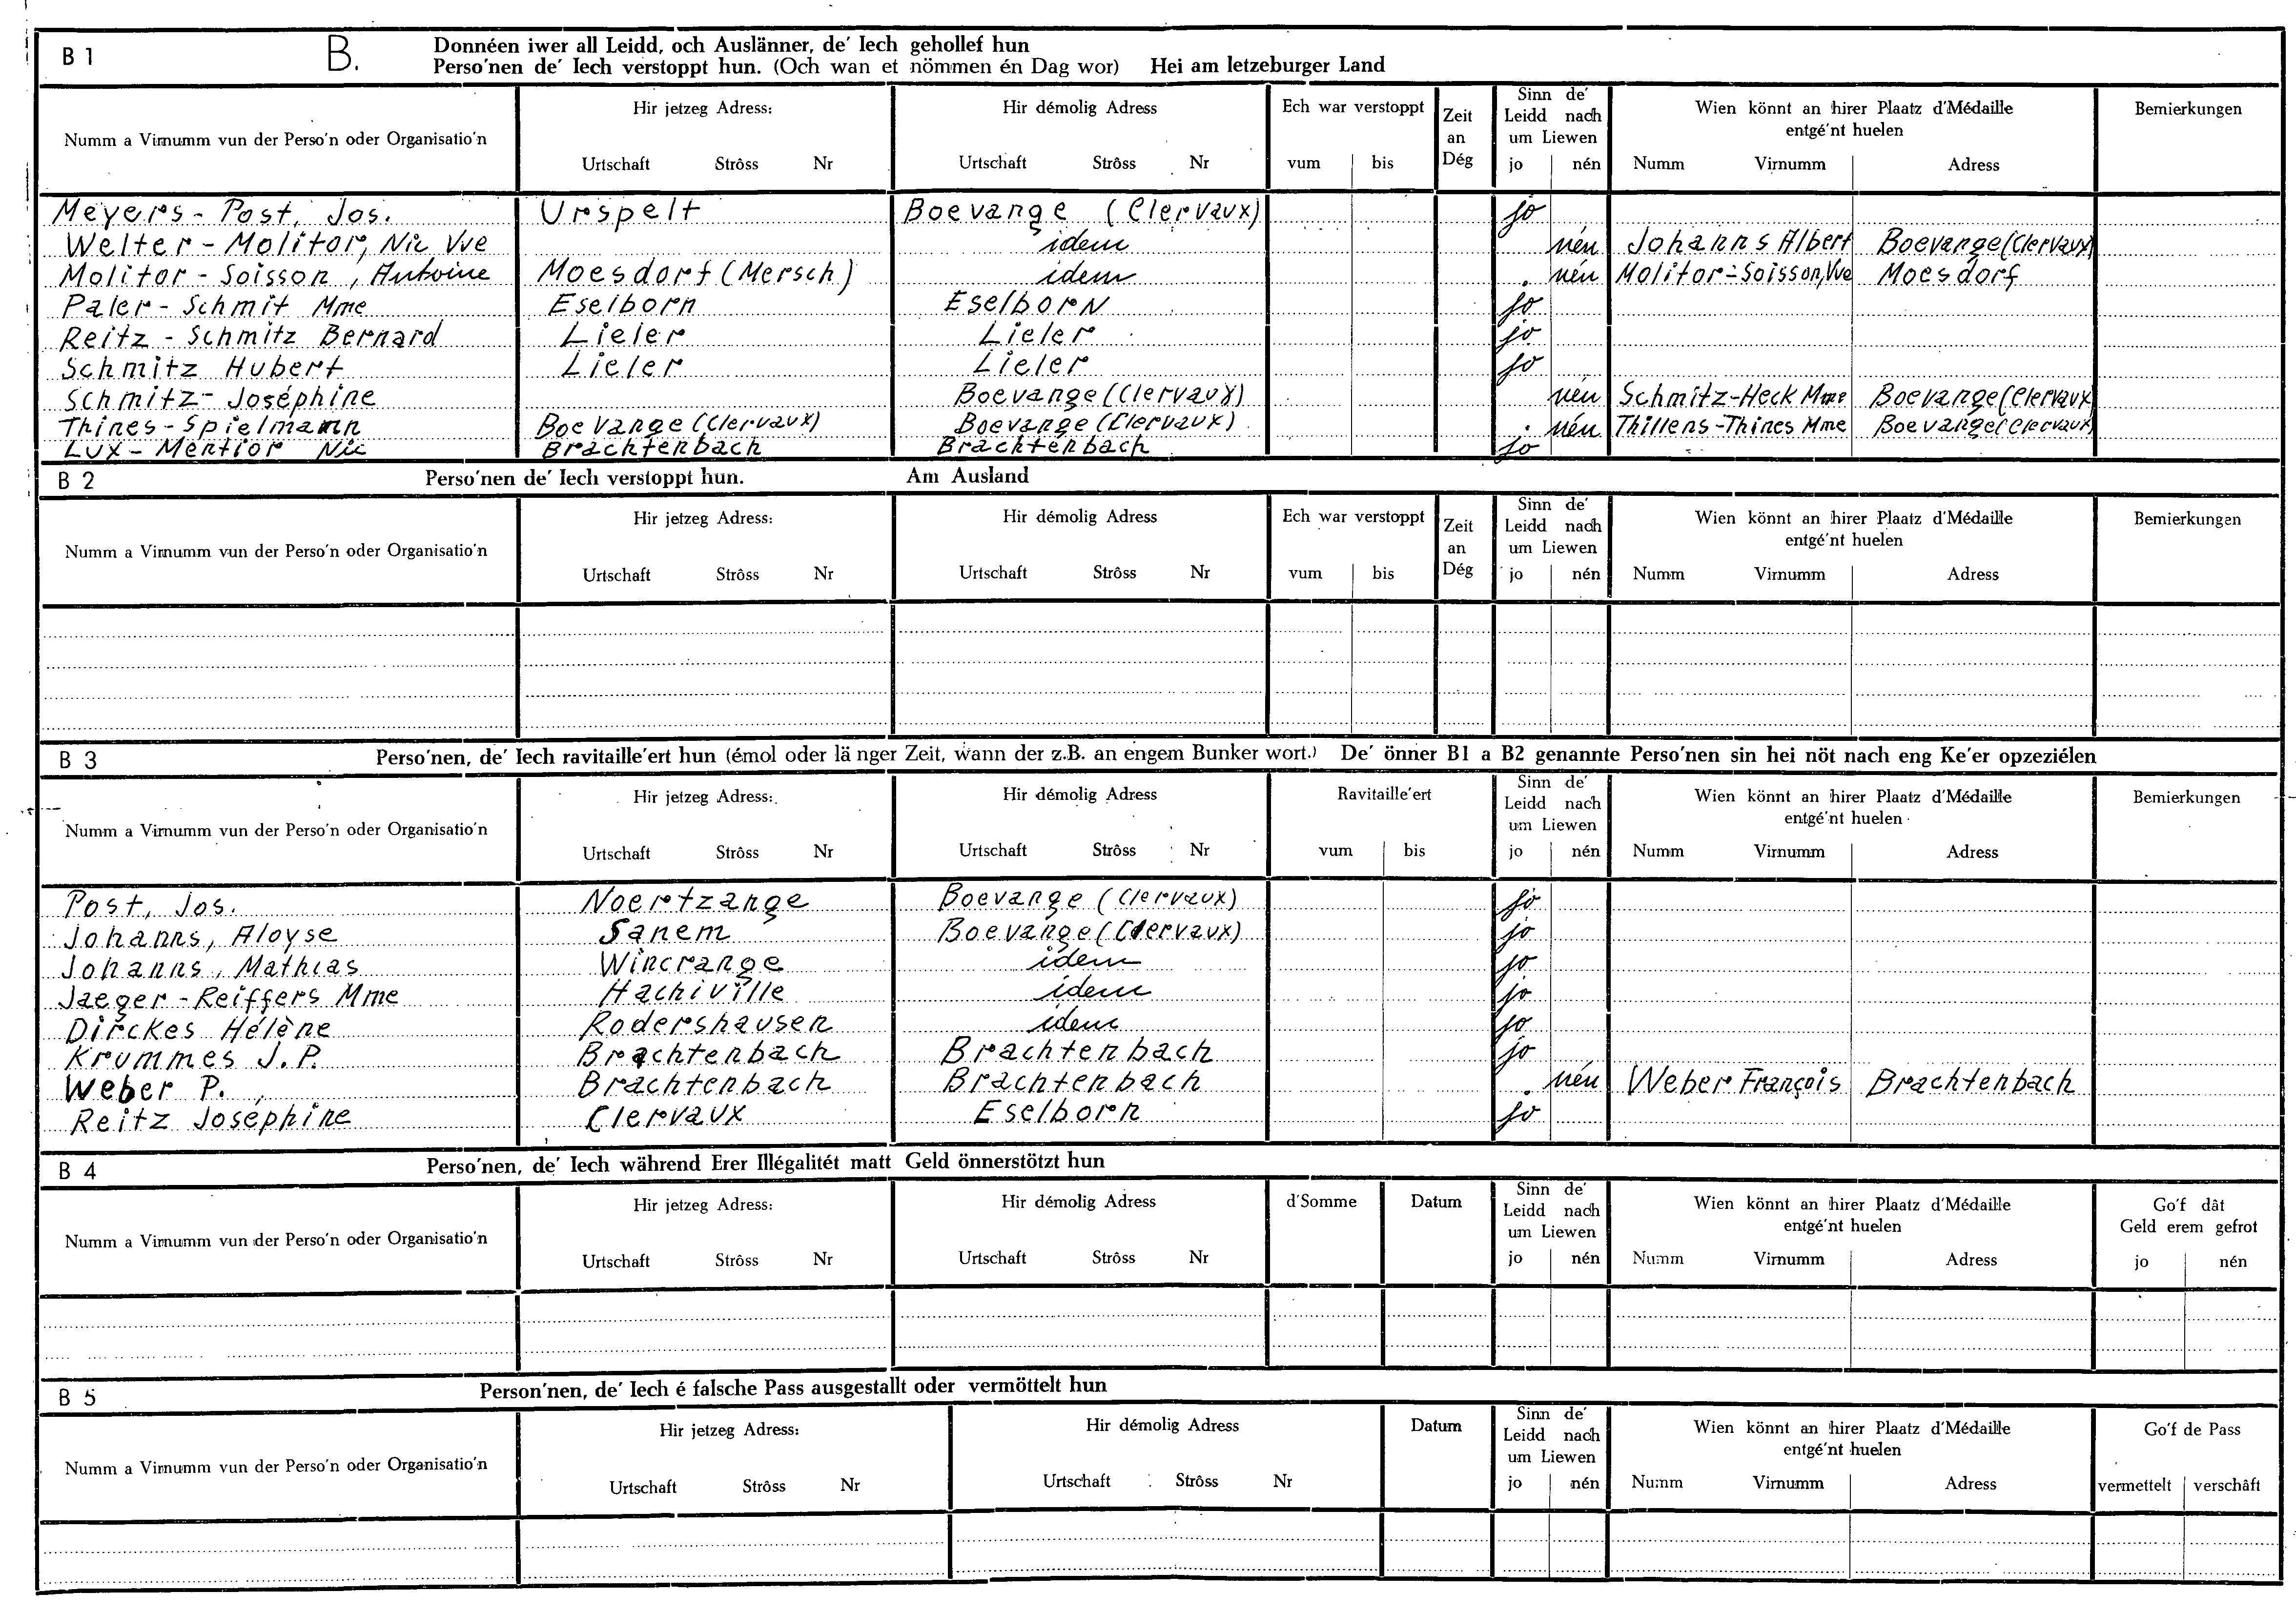 B 1 B. Donnéen iwer all Leidd, och Auslänner, de' Iech gehollef hun
Perso'nen de' Iech verstoppt hun. (Och wan et nömmen én Dag wor) Hei am letzeburger Land
Numm a Virnumm vun der Perso'n oder Organisatio'n
Hir jetzeg Adress:
Urtschaft Strôss Nr
Hir démolig Adress
Urtschaft Strôss Nr
Ech war verstoppt
vum bis
Zeit
an
Dég
Sinn de'
Leidd nach
um Liewen
jo nén
Wien könnt an hirer Plaatz d'Médaille
entgé'nt huelen
Numm Virnumm Adress
Bemierkungen
Meyers - Post, Jos. Urspelt Boevange (Clervaux) jo
Welter - Molitor, Nic Vve idem nén Johanns Albert Boevange (Clervaux)
Molitor - Soisson, Antoine Moesdorf (Mersch) idem nén Molitor-Soisson, Vve Moesdorf
Paler - Schmit Mme Eselborn Eselborn jo
Reitz - Schmitz Bernard Lieler Lieler jo
Schmitz Hubert Lieler Lieler jo
Schmitz- Joséphine Boevange (Clervaux) nén Schmitz-Heck Mme Boevange (Clervaux
Thines - Spielmann Boevange (Clervaux) Boevange (Clervaux) nén Thillens-Thines Mme Boevange (Clervaux)
Lux - Mentior Nic Brachtenbach Brachtenbach jo
B 2 Perso'nen de' Iech verstoppt hun. Am Ausland
Numm a Virnumm vun der Perso'n oder Organisatio'n
Hir jetzeg Adress:
Urtschaft Strôss Nr
Hir démolig Adress
Urtschaft Strôss Nr
Ech war verstoppt
vum bis
Zeit
an
Dég
Sinn de'
Leidd nach
um Liewen
jo nén
Wien könnt an hirer Plaatz d'Médaille
entgé'nt huelen
Numm Virnumm Adress
Bemierkungen
B 3 Perso'nen, de' Iech ravitaille'ert hun (émol oder länger Zeit, wann der z.B. an engem Bunker wort.) De' önner B1 a B2 genannte Perso'nen sin hei nöt nach eng Ke'er opzeziélen
Numm a Virnumm vun der Perso'n oder Organisatio'n
Hir jetzeg Adress:
Urtschaft Strôss Nr
Hir démolig Adress
Urtschaft Strôss Nr
Ravitaille'ert
vum bis
Sinn de'
Leidd nach
um Liewen
jo nén
Wien könnt an hirer Plaatz d'Médaille
entgé'nt huelen
Numm Virnumm Adress
Bemierkungen
Post, Jos. Noertzange Boevange (Clervaux) jo
Johanns, Aloyse Sanem Boevange (Clervaux) jo
Johanns, Mathias Wincrange idem jo
Jaeger - Reiffers Mme Hachiville idem jo
Dirckes Hélène Rodershausen idem jo
Krummes J.P. Brachtenbach Brachtenbach jo
Weber P. Brachtenbach Brachtenbach nén Weber François Brachtenbach
Reitz Joséphine Clervaux Eselborn jo
B 4 Perso'nen, de' Iech während Erer Illégalitét matt Geld önnerstötzt hun
Numm a Virnumm vun der Perso'n oder Organisatio'n
Hir jetzeg Adress:
Urtschaft Strôss Nr
Hir démolig Adress
Urtschaft Strôss Nr
d'Somme
Datum
Sinn de'
Leidd nach
um Liewen
jo nén
Wien könnt an hirer Plaatz d'Médaille
entgé'nt huelen
Numm Virnumm Adress
Go'f dât
Geld erem gefrot
jo nén
B 5 Person'nen, de' Iech é falsche Pass ausgestallt oder vermöttelt hun
Numm a Virnumm vun der Perso'n oder Organisatio'n
Hir jetzeg Adress:
Urtschaft Strôss Nr
Hir démolig Adress
Urtschaft Strôss Nr
Datum
Sinn de'
Leidd nach
um Liewen
jo nén
Wien könnt an hirer Plaatz d'Médaille
entgé'nt huelen
Numm Virnumm Adress
Go'f de Pass
vermettelt verschâft